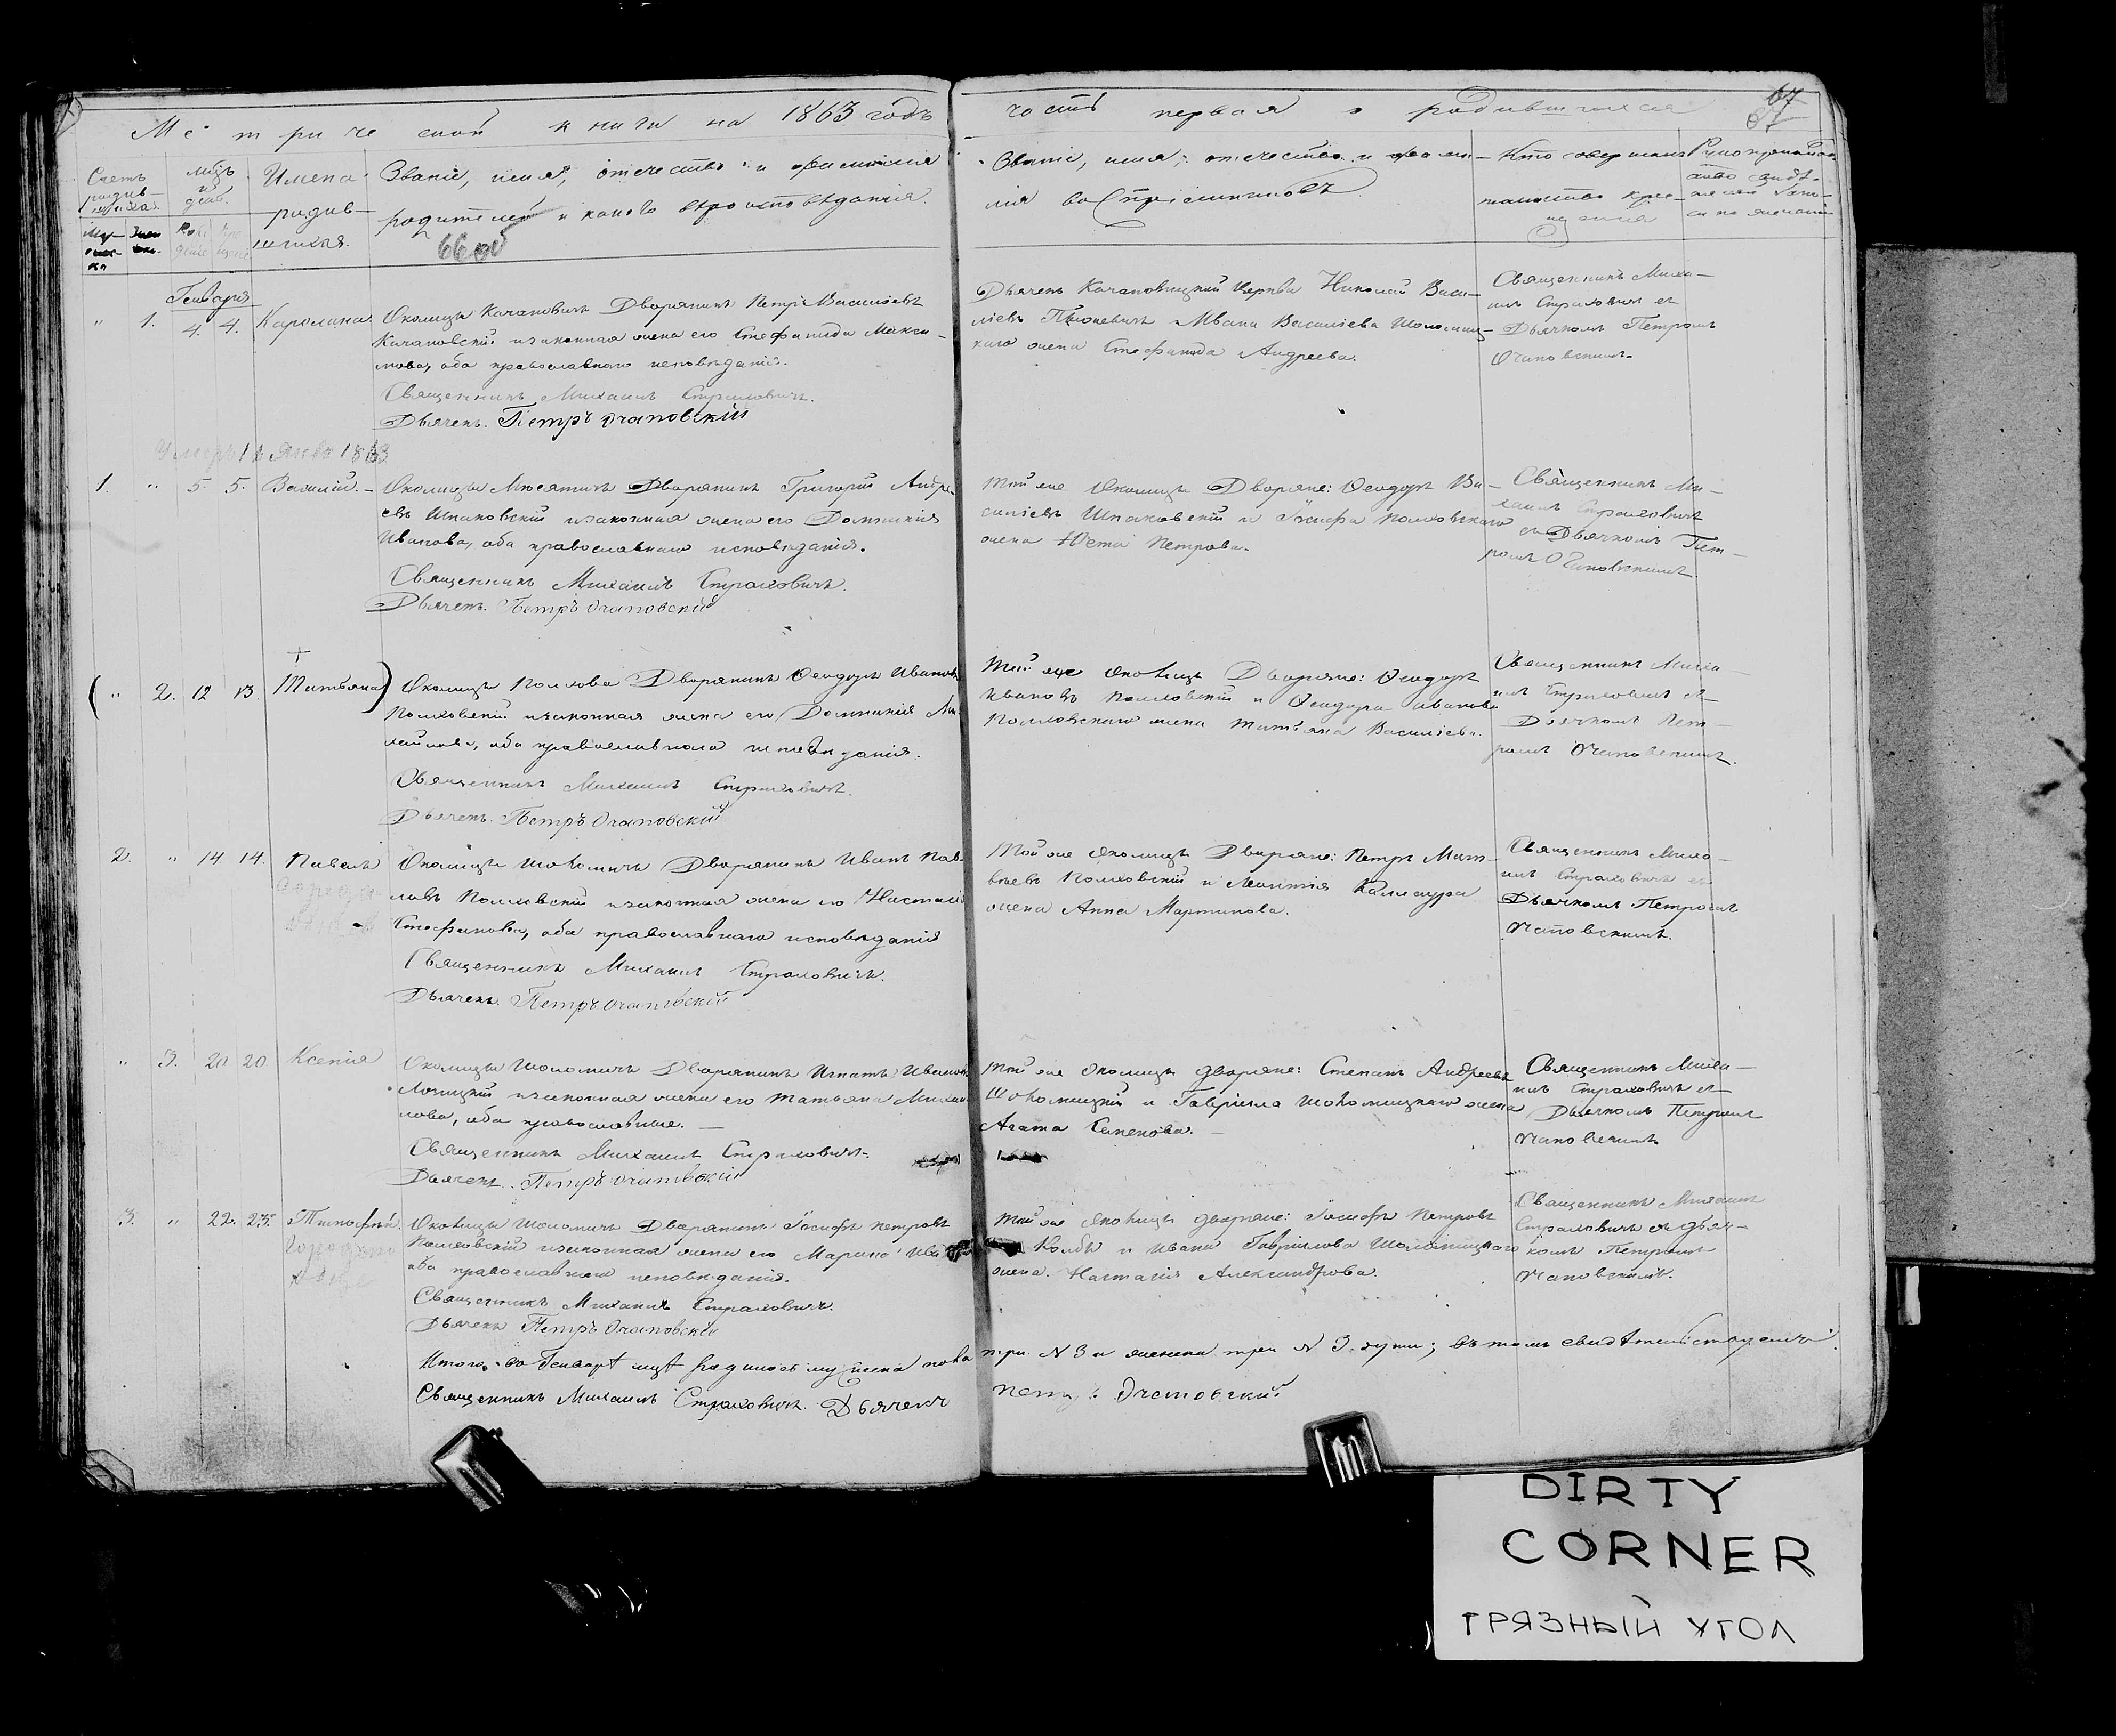 Метрической книги на 1863 годъ
часть первая о родившихся
67
Счетъ родив-
шихся.
Имена
родив-
шихся.
Званіе, имя, отечество и фамилія
родителей и какого вѣроисповѣданія.
66 об
Званіе, имя, отечество и фами-
лія воспріемниковъ
Кто совершалъ
таинство кре-
щенія
Генваря
" 1. 4. 4. Каролина.
Околицы Качановичъ Дворянинъ Петръ Василіевъ
Качановскій и законная жена его Стефанида Макси-
мова, оба православнаго исповѣданія.
Священникъ Михаилъ Страховичъ.
Дьячекъ. Петръ Очаповскій
Дьячекъ Качановицкой Церкви Николай Васи-
ліевъ и Ивана Василіева
жена Стефанида Андреева.
Священникъ Миха-
илъ Страховичъ съ
Дьячкомъ Петромъ
Очаповскимъ.
Умеръ 1863
1. " 5. 5. Василій.
Околицы Дворянинъ Григорій Андре-
евъ Шпаковскій и законная жена его Домникія
Иванова, оба православнаго исповѣданія.
Священникъ Михаилъ Страховичъ.
Дьячекъ. Петръ Очаповскій
Той же Околицы Дворяне: Ѳеодоръ Ва-
силіевъ Шпаковскій и Іосифа Полховскаго
жена Петрова.
Священникъ Ми-
хаилъ Страховичъ
съ Дьячкомъ Пет-
ромъ Очаповскимъ.
( " 2. 12 13. Татьяна)
Околицы Полхова Дворянинъ Ѳеодоръ Ивановъ
Полховскій и законная жена его Домникія Ми-
хайлова, оба православнаго исповѣданія.
Священникъ Михаилъ Страховичъ.
Дьячекъ. Петръ Очаповскій
Той же Околицы Дворяне: Ѳеодоръ
Ивановъ Полховскій и Ѳеодора Иванова
Полховскаго жена Татьяна Василіева.
Священникъ Миха-
илъ Страховичъ съ
Дьячкомъ Пет-
ромъ Очаповскимъ.
2. " 14 14. Павелъ
Околицы Шоломичъ Дворянинъ Иванъ Пав-
ловъ Полховскій и законная жена его Настасія
Стефанова, оба православнаго исповѣданія
Священникъ Михаилъ Страховичъ.
Дьячекъ. Петръ Очаповскій
Той же Околицы Дворяне: Петръ Мат-
вѣевъ Полховскій и Каллаура
жена Анна Мартинова.
Священникъ Миха-
илъ Страховичъ съ
Дьячкомъ Петромъ
Очаповскимъ.
" 3. 20 20 Ксенія
Околицы Шоломичъ Дворянинъ Игнатъ Ивановъ
и законная жена его Татьяна Михай-
лова, оба православные.
Священникъ Михаилъ Страховичъ.
Дьячекъ. Петръ Очаповскій
Той же Околицы дворяне: Степанъ Андреевъ
Шоломицкій и Гавріила Шоломицкаго жена
Агата Семенова.
Священникъ Миха-
илъ Страховичъ съ
Дьячкомъ Петромъ
Очаповскимъ
3. " 22. 23. Тимофѣй.
Околицы Шоломичъ Дворянинъ Іосифъ Петровъ
Полховскій и законная жена его Марина
оба православнаго исповѣданія.
Священникъ Михаилъ Страховичъ.
Дьячекъ Петръ Очаповскій
Той же Околицы дворяне: Іосифъ Петровъ
Колбъ и Ивана Гаврілова Шоломицкаго
жена. Настасія Александрова.
Священникъ Михаилъ
Страховичъ съ дьяч-
комъ Петромъ
Очаповскимъ.
Итого въ Генварѣ мцѣ родилось мужеска пола
три N 3 и женска три N 3. души; въ томъ свидѣтельствуемъ.
Священникъ Михаилъ Страховичъ. Дьячекъ
Петръ Очаповскій
DIRTY
CORNER
ГРЯЗНЫЙ УГОЛ